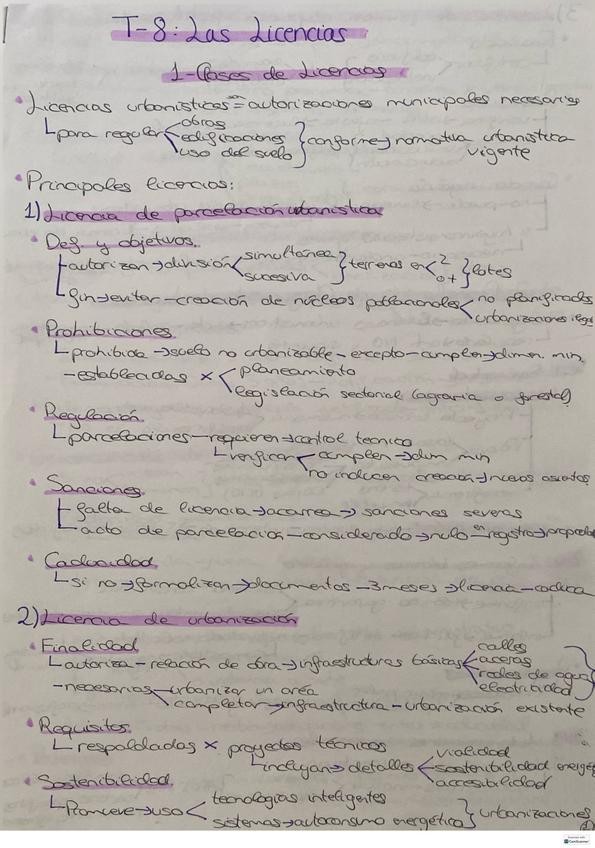 T-8: Las Licencias
1-Clases de Licencias
• Licencias urbanísticas = autorizaciones municipales necesarias
para regular obras
edificaciones
uso del suelo
conforme → normativa urbanística
vigente
• Principales licencias:
1) Licencia de parcelación urbanística
• Def. y objetivos.
autorizan → división simultánea
sucesiva
terrenos en 2
o +
lotes
fin → evitar - creación de núcleos poblacionales no planificados
urbanizaciones
• Prohibiciones.
prohibida → suelo no urbanizable - excepto - cumplen → dimen. min.
- establecidas x planeamiento
legislación sectorial (agraria o forestal)
• Regulación.
parcelaciones - requieren → control tecnico
verificar cumplen → dim min
no inducen creación → nuevos
• Sanciones.
falta de licencia → acarrea → sanciones severas
acto de parcelacion - considerado → nulo - en registro →
• Caducidad.
si no → formalizan → documentos - 3 meses → licencia - caduca
2) Licencia de urbanización
• Finalidad
autoriza - relación de obra → infraestructuras básicas calles
aceras
redes de agua
electricidad
- necesarias urbanizar un area
completar → infraestructura - urbanización existente
• Requisitos.
respaldadas x proyectos técnicos
incluyan → detalles vialidad
sostenibilidad
accesibilidad
• Sostenibilidad.
Promueve → uso tecnologías inteligentes
sistemas → autoconsumo energético
urbanizaciones
CamScanner